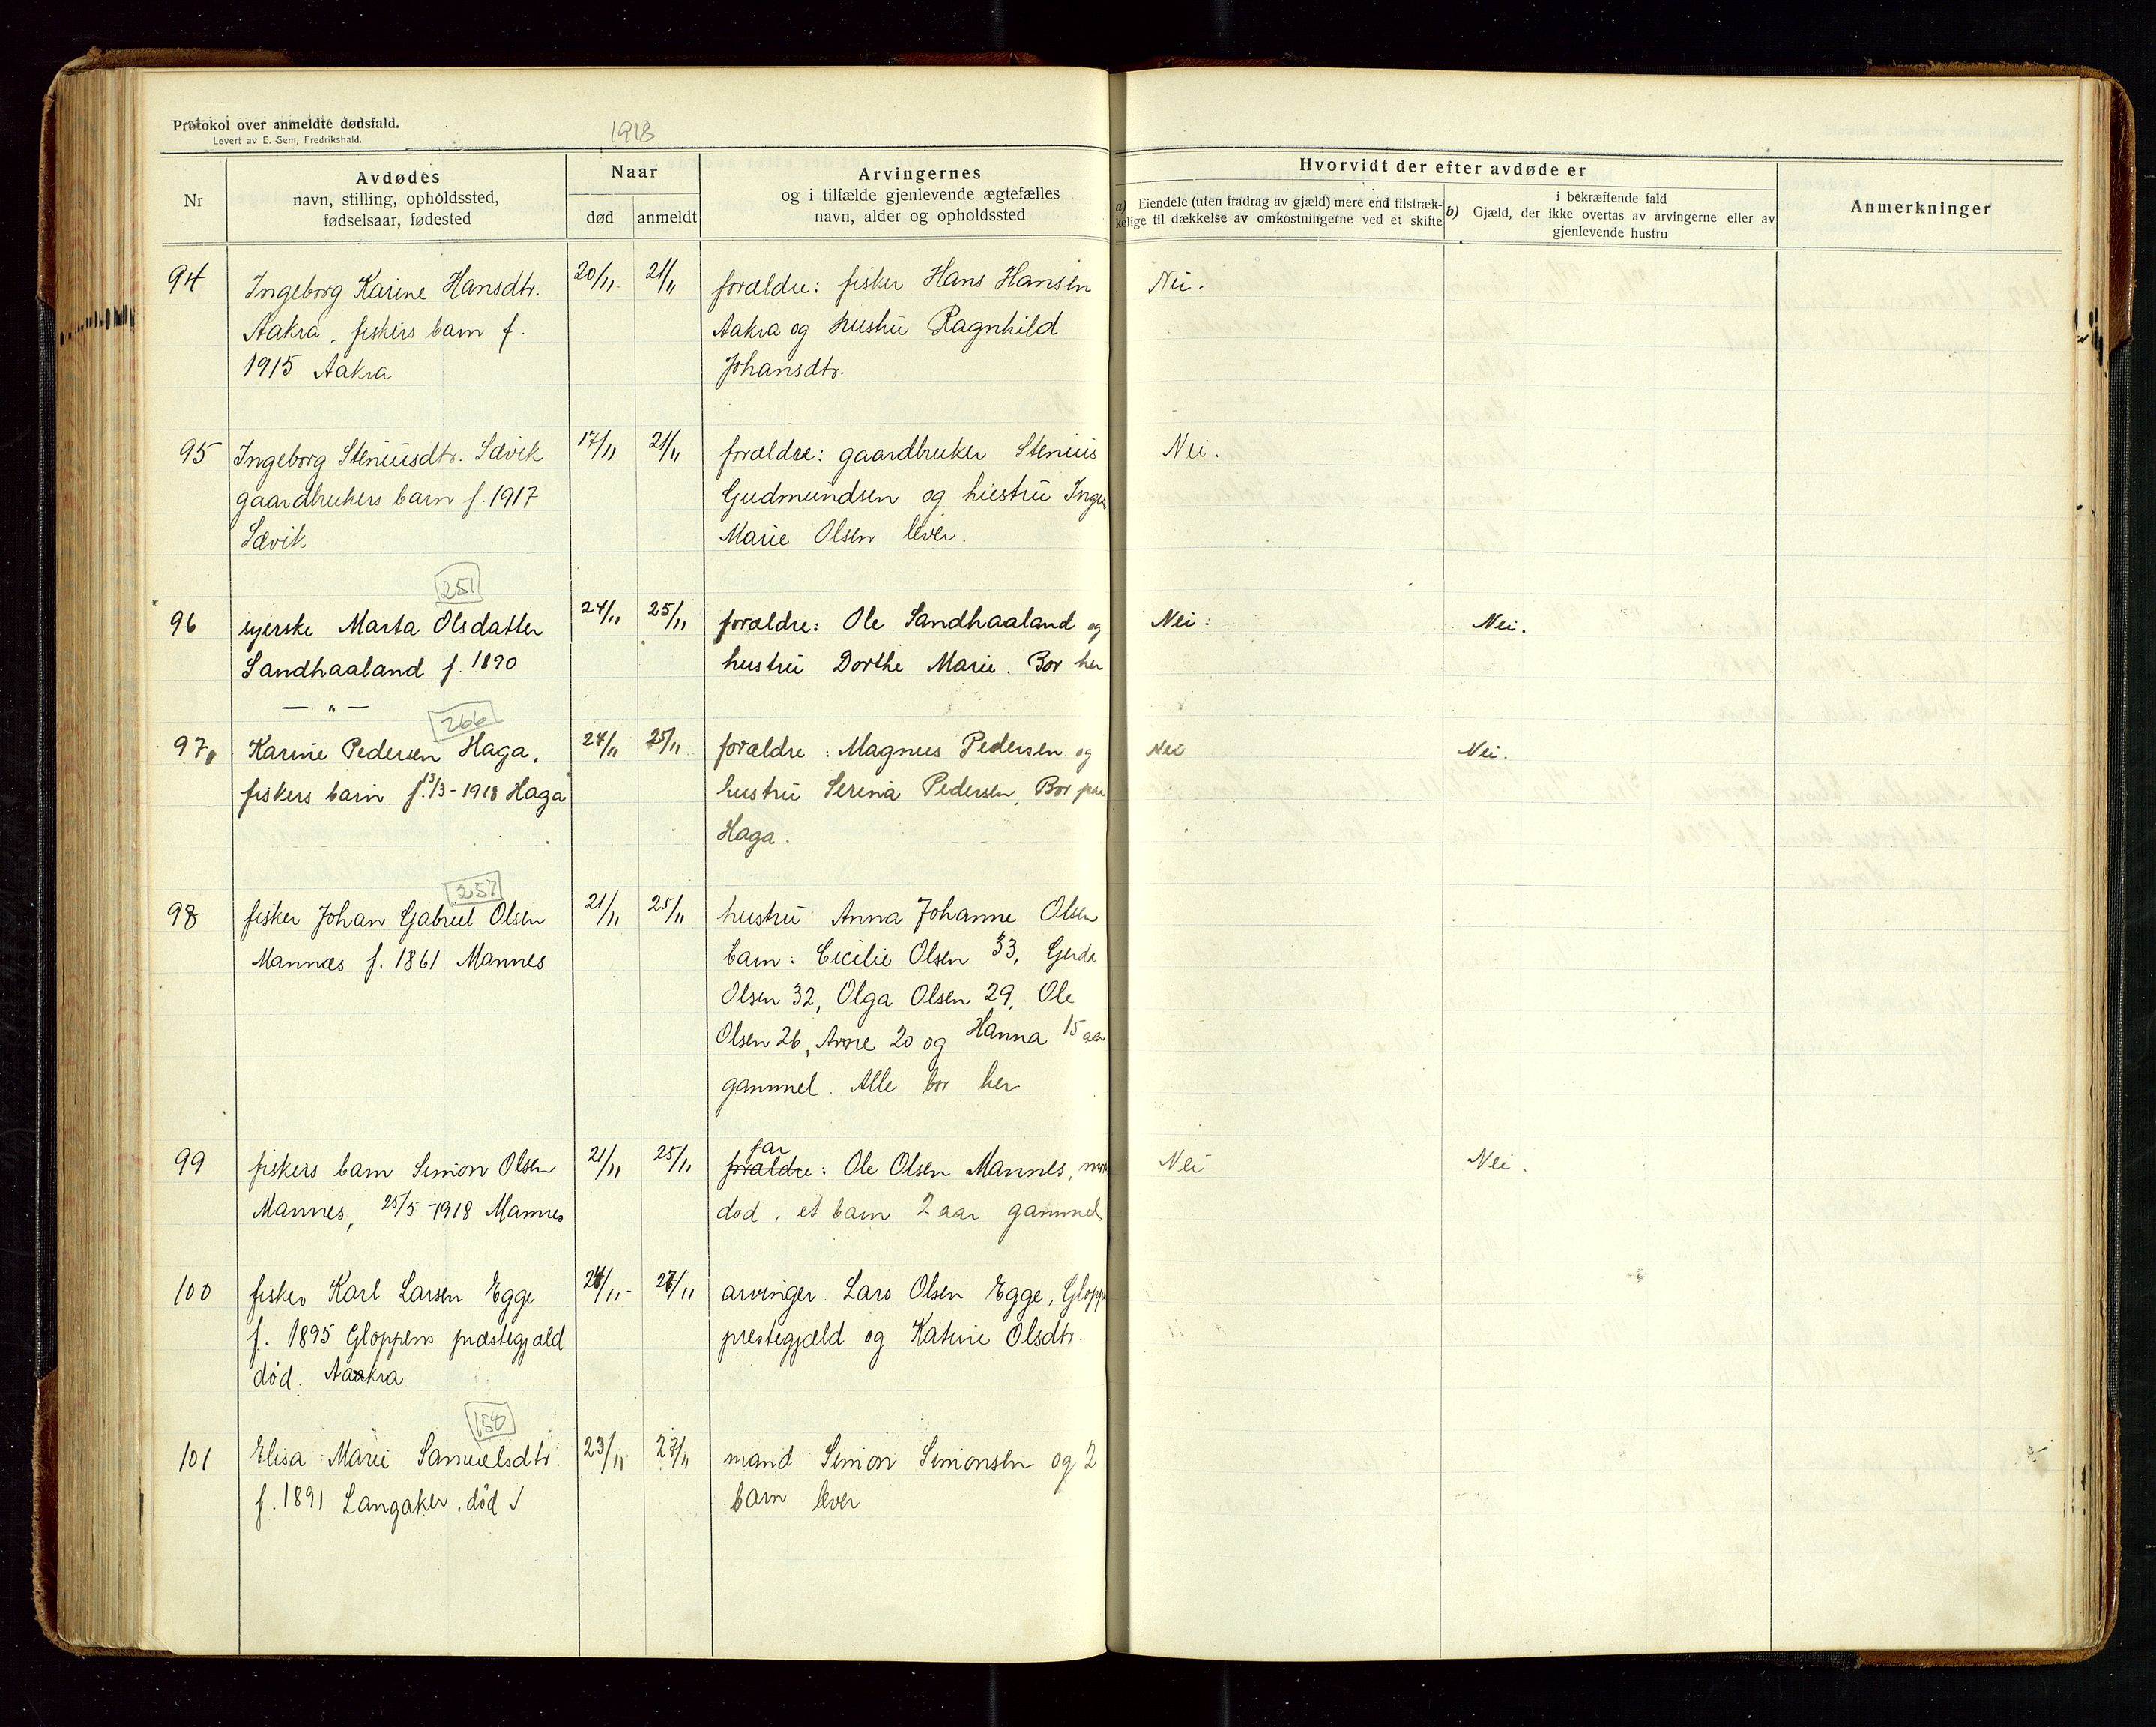 Protokol over anmeldte dødsfald.
Levert av E. Sem, Fredrikshald.
1918
Nr
Avdødes
navn, stilling, opholdssted,
fødselsaar, fødested
Naar
død
anmeldt
Arvingernes
og i tilfælde gjenlevende ægtefælles
navn, alder og opholdssted
Hvorvidt der efter avdøde er
a) Eiendele (uten fradrag av gjæld) mere end tilstræk-
kelige til dækkelse av omkostningerne ved et skifte
i bekræftende fald
b) Gjæld, der ikke overtas av arvingerne eller av
gjenlevende hustru
Anmerkninger
94 Ingeborg Karine Hansdtr. 20/11. 21/11 forældre: fisker Hans Hansen Nei.
Aakra, fiskers barn f. Aakra og hustru Ragnhild
1915 Aakra Johansdtr.
95 Ingeborg Steniusdtr. Sævik 17/11 21/11 forældre: gaardbruker Stenius Nei.
gaardbrukers barn f. 1917 Gudmundsen og hustru
Sævik Marie Olsen lever.
251
96 syerske Marta Olsdatter 24/11 25/11 forældre: Ole Sandhaaland og Nei. Nei.
Sandhaaland f. 1890 hustru Dorthe Marie. Bor her
— " —
266
97 Karine Pedersen Haga, 24/11 25/11 forældre: Magnus Pedersen og Nei Nei.
fiskers barn f. 13/3-1918 Haga hustru Serina Pedersen, Bor paa
Haga.
257
98 fisker Johan Gabriel Olsen 21/11 25/11 hustru Anna Johanne Olsen
Mannes f. 1861 Mannes barn: Cicilie Olsen 33, Gerda
Olsen 32, Olga Olsen 29, Ole
Olsen 26, Arne 20 og Hanna 15 aar
gammel. Alle bor her
far
99 fiskers barn Simon Olsen 21/11 25/11 forældre: Ole Olsen Mannes, mor Nei Nei.
Mannes, 25/5-1918 Mannes død, et barn 2 aar gammel
100 fisker Karl Larsen Egge /11- /11 arvinger. Lars Olsen Egge,
f. 1895 Gloppens præstegjæld prestegjæld og Katrine Olsdtr.
død. Aakra
150
101 Elisa Marie Samuelsdtr. 23/11 27/11 mand Simon Simonsen og 2
f. 1891 Langaker, død barn lever